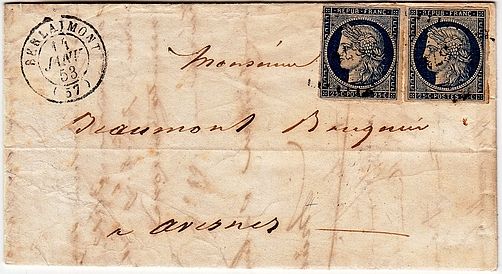 REPUB. FRANC.
REPUB. FRANC.
25 C POSTES 25 C
25 C POSTES 25 C
BERLAIMONT
11
JANV.
53
(57)
Monsieur
Beaumont Banquier
a avesnes